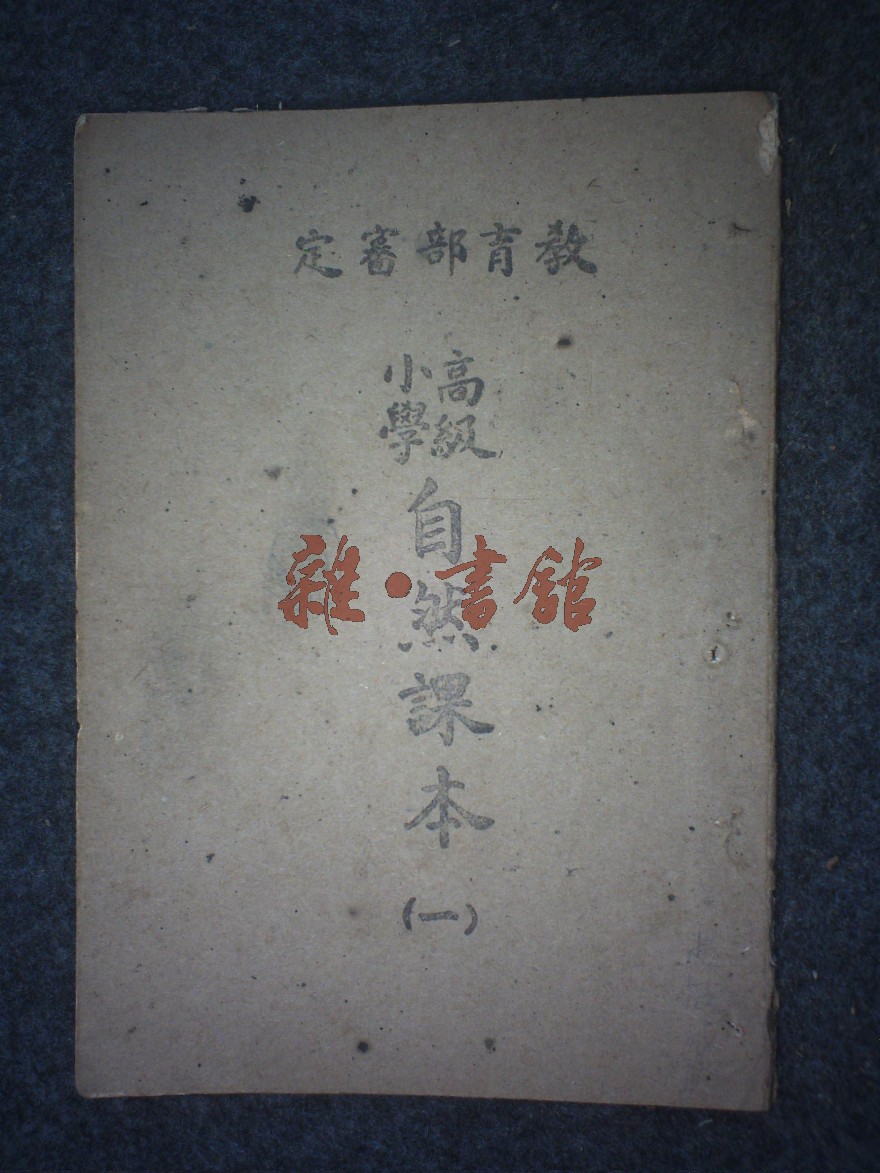 教育部審定
高級
小學
自然課本
(一)
雜·書館